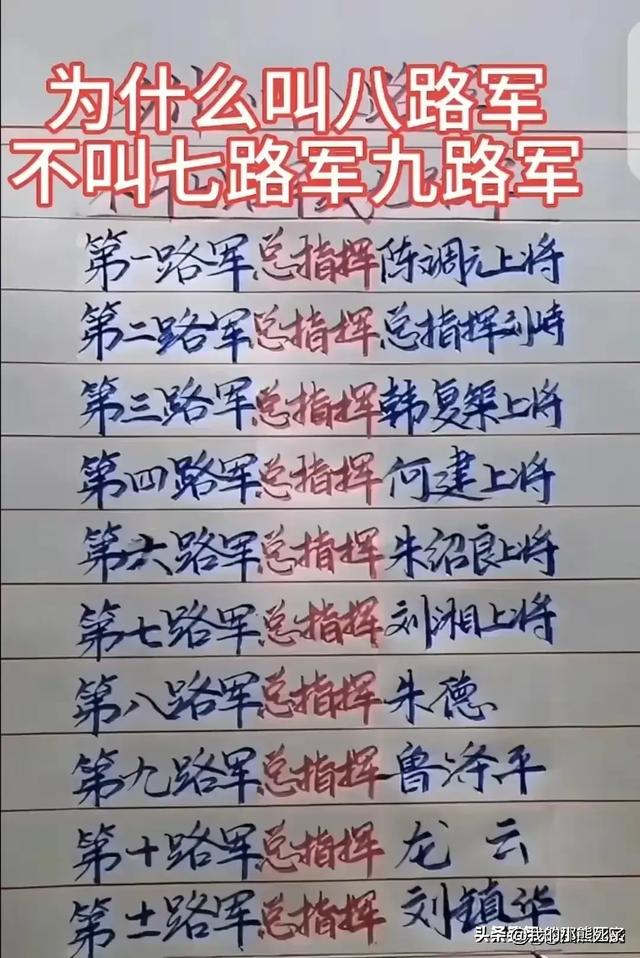 为什么叫八路军
不叫七路军九路军
第一路军总指挥陈调元上将
第二路军总指挥总指挥刘峙
第三路军总指挥韩复榘上将
第四路军总指挥何建上将
第六路军总指挥朱绍良上将
第七路军总指挥刘湘上将
第八路军总指挥朱德
第九路军总指挥鲁涤平
第十路军总指挥龙云
第十一路军总指挥刘镇华
头条@我的那熊死了